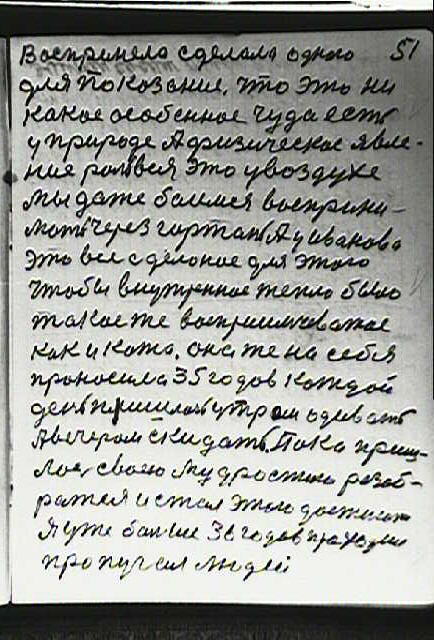 Восприняло сделала одного 51
для показание, что это ни
какое особенное чуда есть
у природе А физическое явле-
ние развея это у воздухе
мы даже боимся восприни-
мать через гортань, А у Иванова
это все сделоное для этого
чтобы внутрнное тепло было
такое же восприимчевое
как и кожа, она же на себя
проносила 35 годов каждой
день пришлось утром одевать
А вечером скидать, Пока приш-
лось своею мудростию розоб-
ратся и стал этого достигат
Я уже больше 36 годов
пропупсил людей